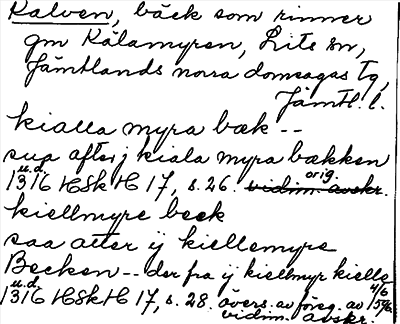 Kalven, bäck som rinner
gm Kälamyren, Lits sn,
Jämtlands norra domsagas tg,
Jämtl. l.
kialla myra bæk --
sup after j kiala myra bækken
u.d.
1316 HSkH 17, s. 26. vidim. avskr. orig.
kiellmyre beck
saa atter ij kiellemyre
Becken -- der fra ij kiellmyr kielle
u.d.
1316 HSkH 17, s. 28. övers. av föreg. av 4/6 1596
vidim. avskr.